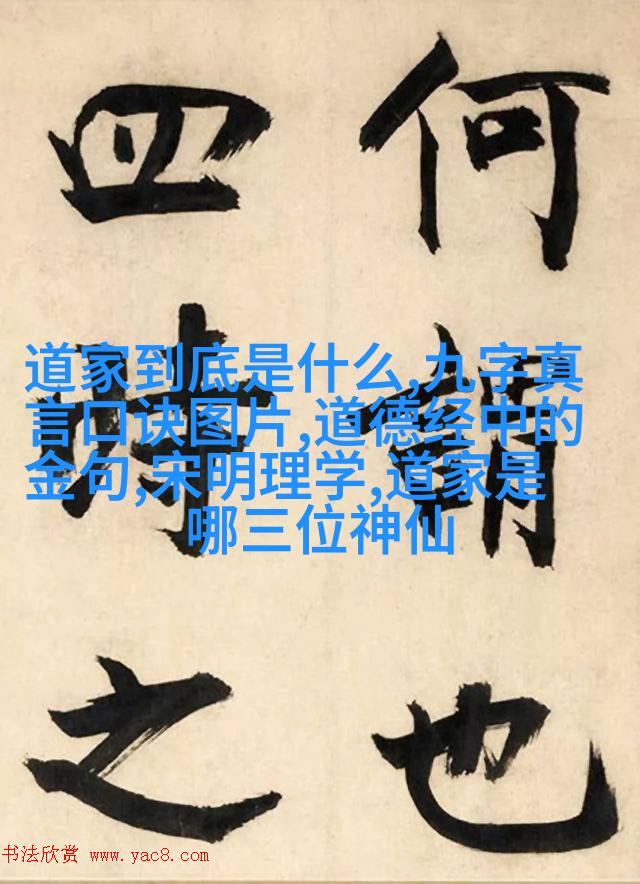 何謂也
四時之
道家到底是什么,九字真
言口诀图片,道德经中的
金句,宋明理学,道家是
哪三位神仙
书法欣赏 www.yac8.com